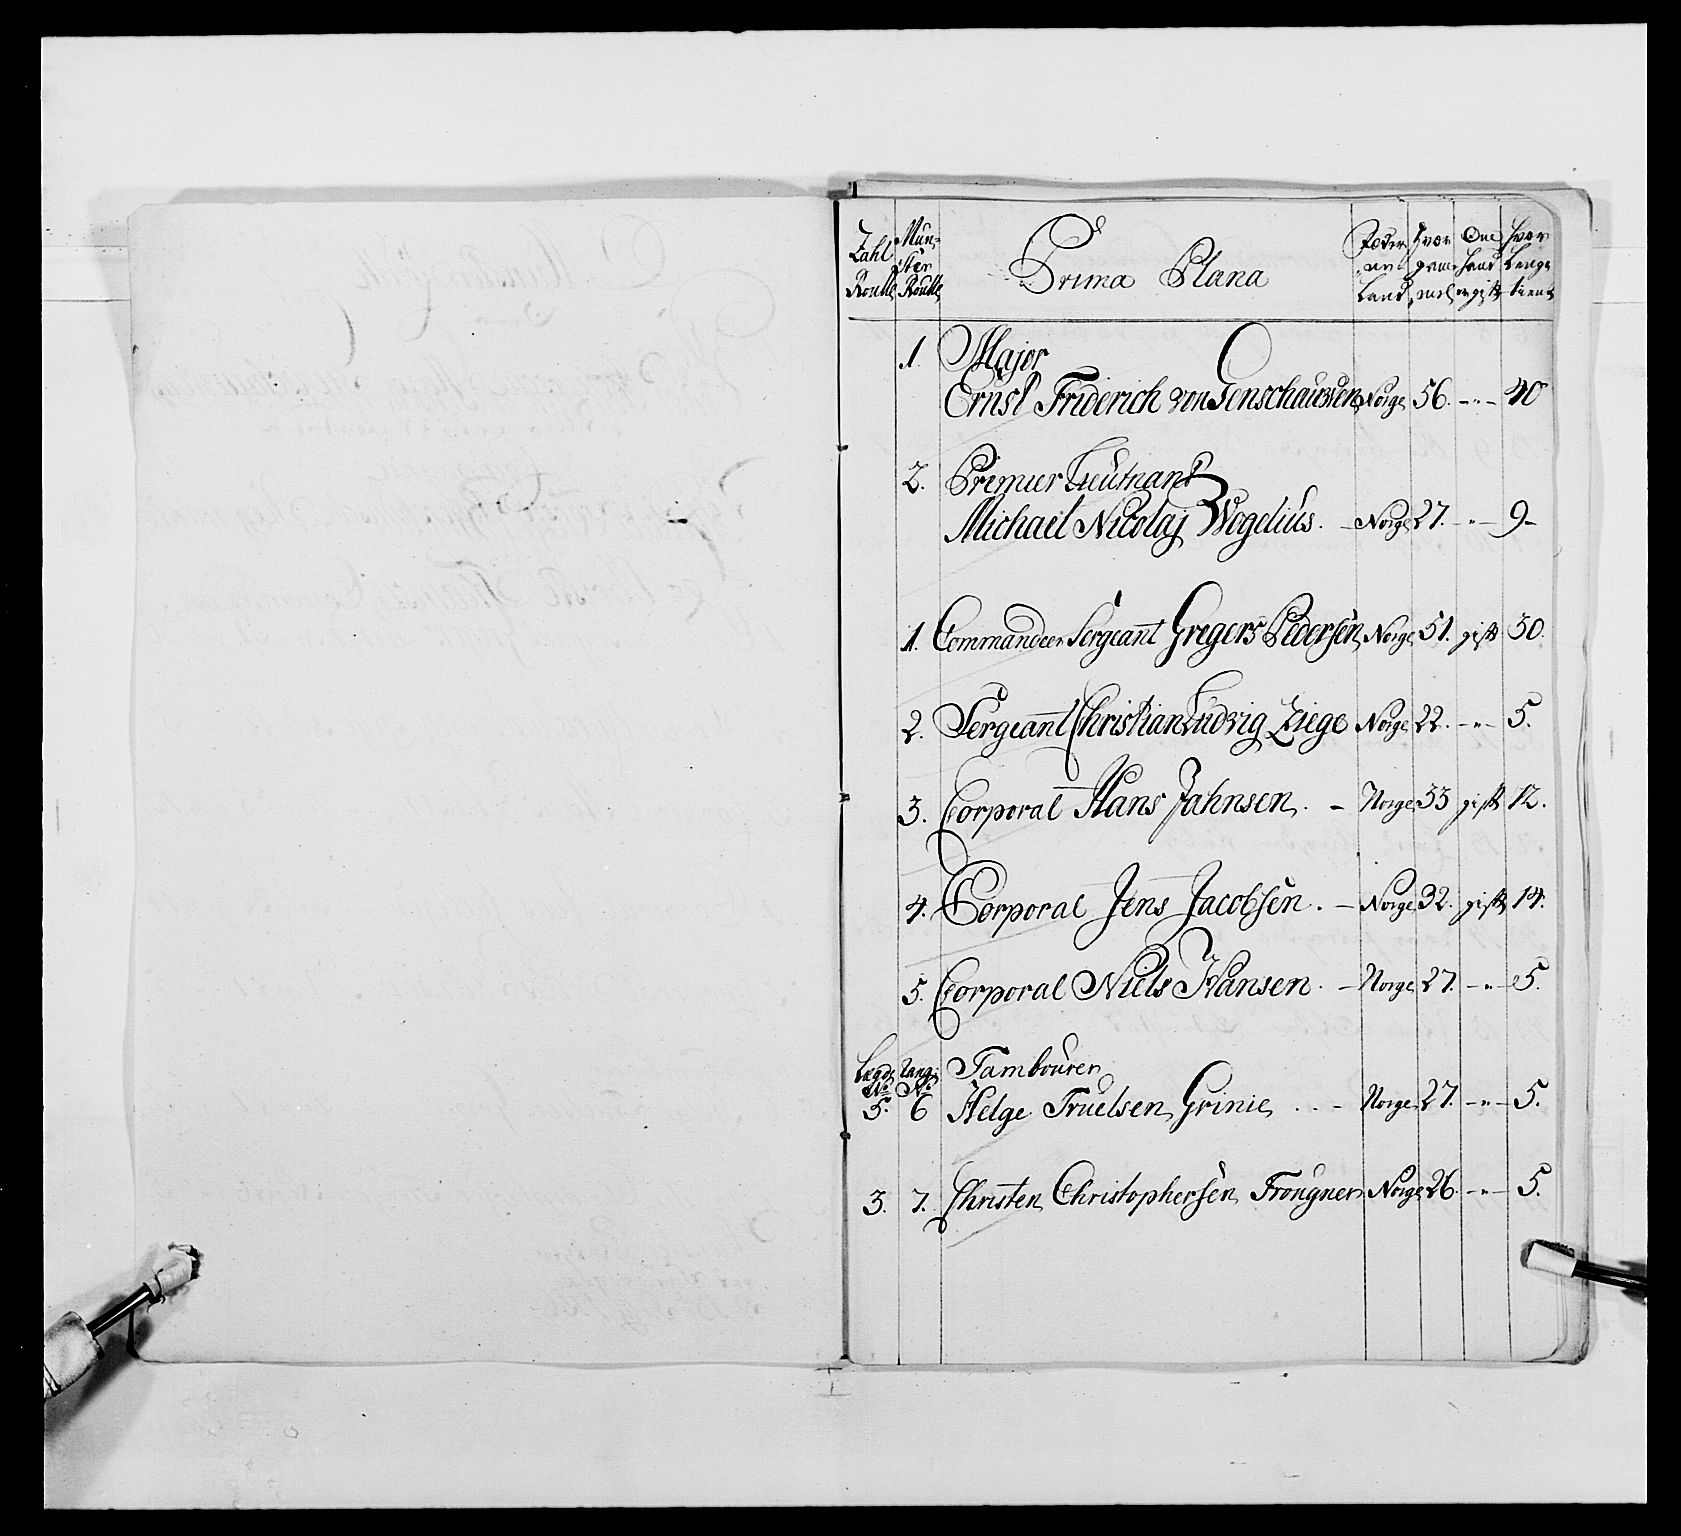 Zahl Roulle | Mün-ster Roulle | Prima Plana | Fæder-ne Land | Hvor gam-mel | Om hand er gift | Hvor Længe tient
1. Major
Ernst Friderich von Jenschausen Norge 56. -"- 40
2. Premier Lieutnant
Michael Nicolaj Wogelius. - Norge 27. -"- 9-
1. Commandeer Sergeant Gregers Pedersen Norge 51. gift 30.
2. Sergeant Christian Ludvig Ziege Norge 22. -"- 5.
3. Corporal Hans Jahnsen. - Norge 33 gift 12.
4. Corporal Jens Jacobsen. - Norge 32. gift 14.
5. Corporal Niels Hansen. - Norge 27. -"- 5.
Lægds No Rang No Tambourer
5. 6 Helge Truelsen Grinie . . - Norge 27. -"- 5.
3. 7. Christen Christophersen Frougner Norge 26. -"- 5.